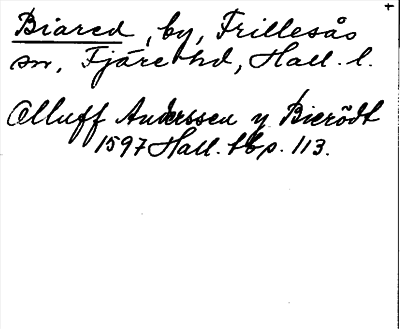 Biared, by, Frillesås
sn, Fjäre hd, Hall. l.
Olluff Anderssen y Bierödt
1597 Hall. tb p. 113.